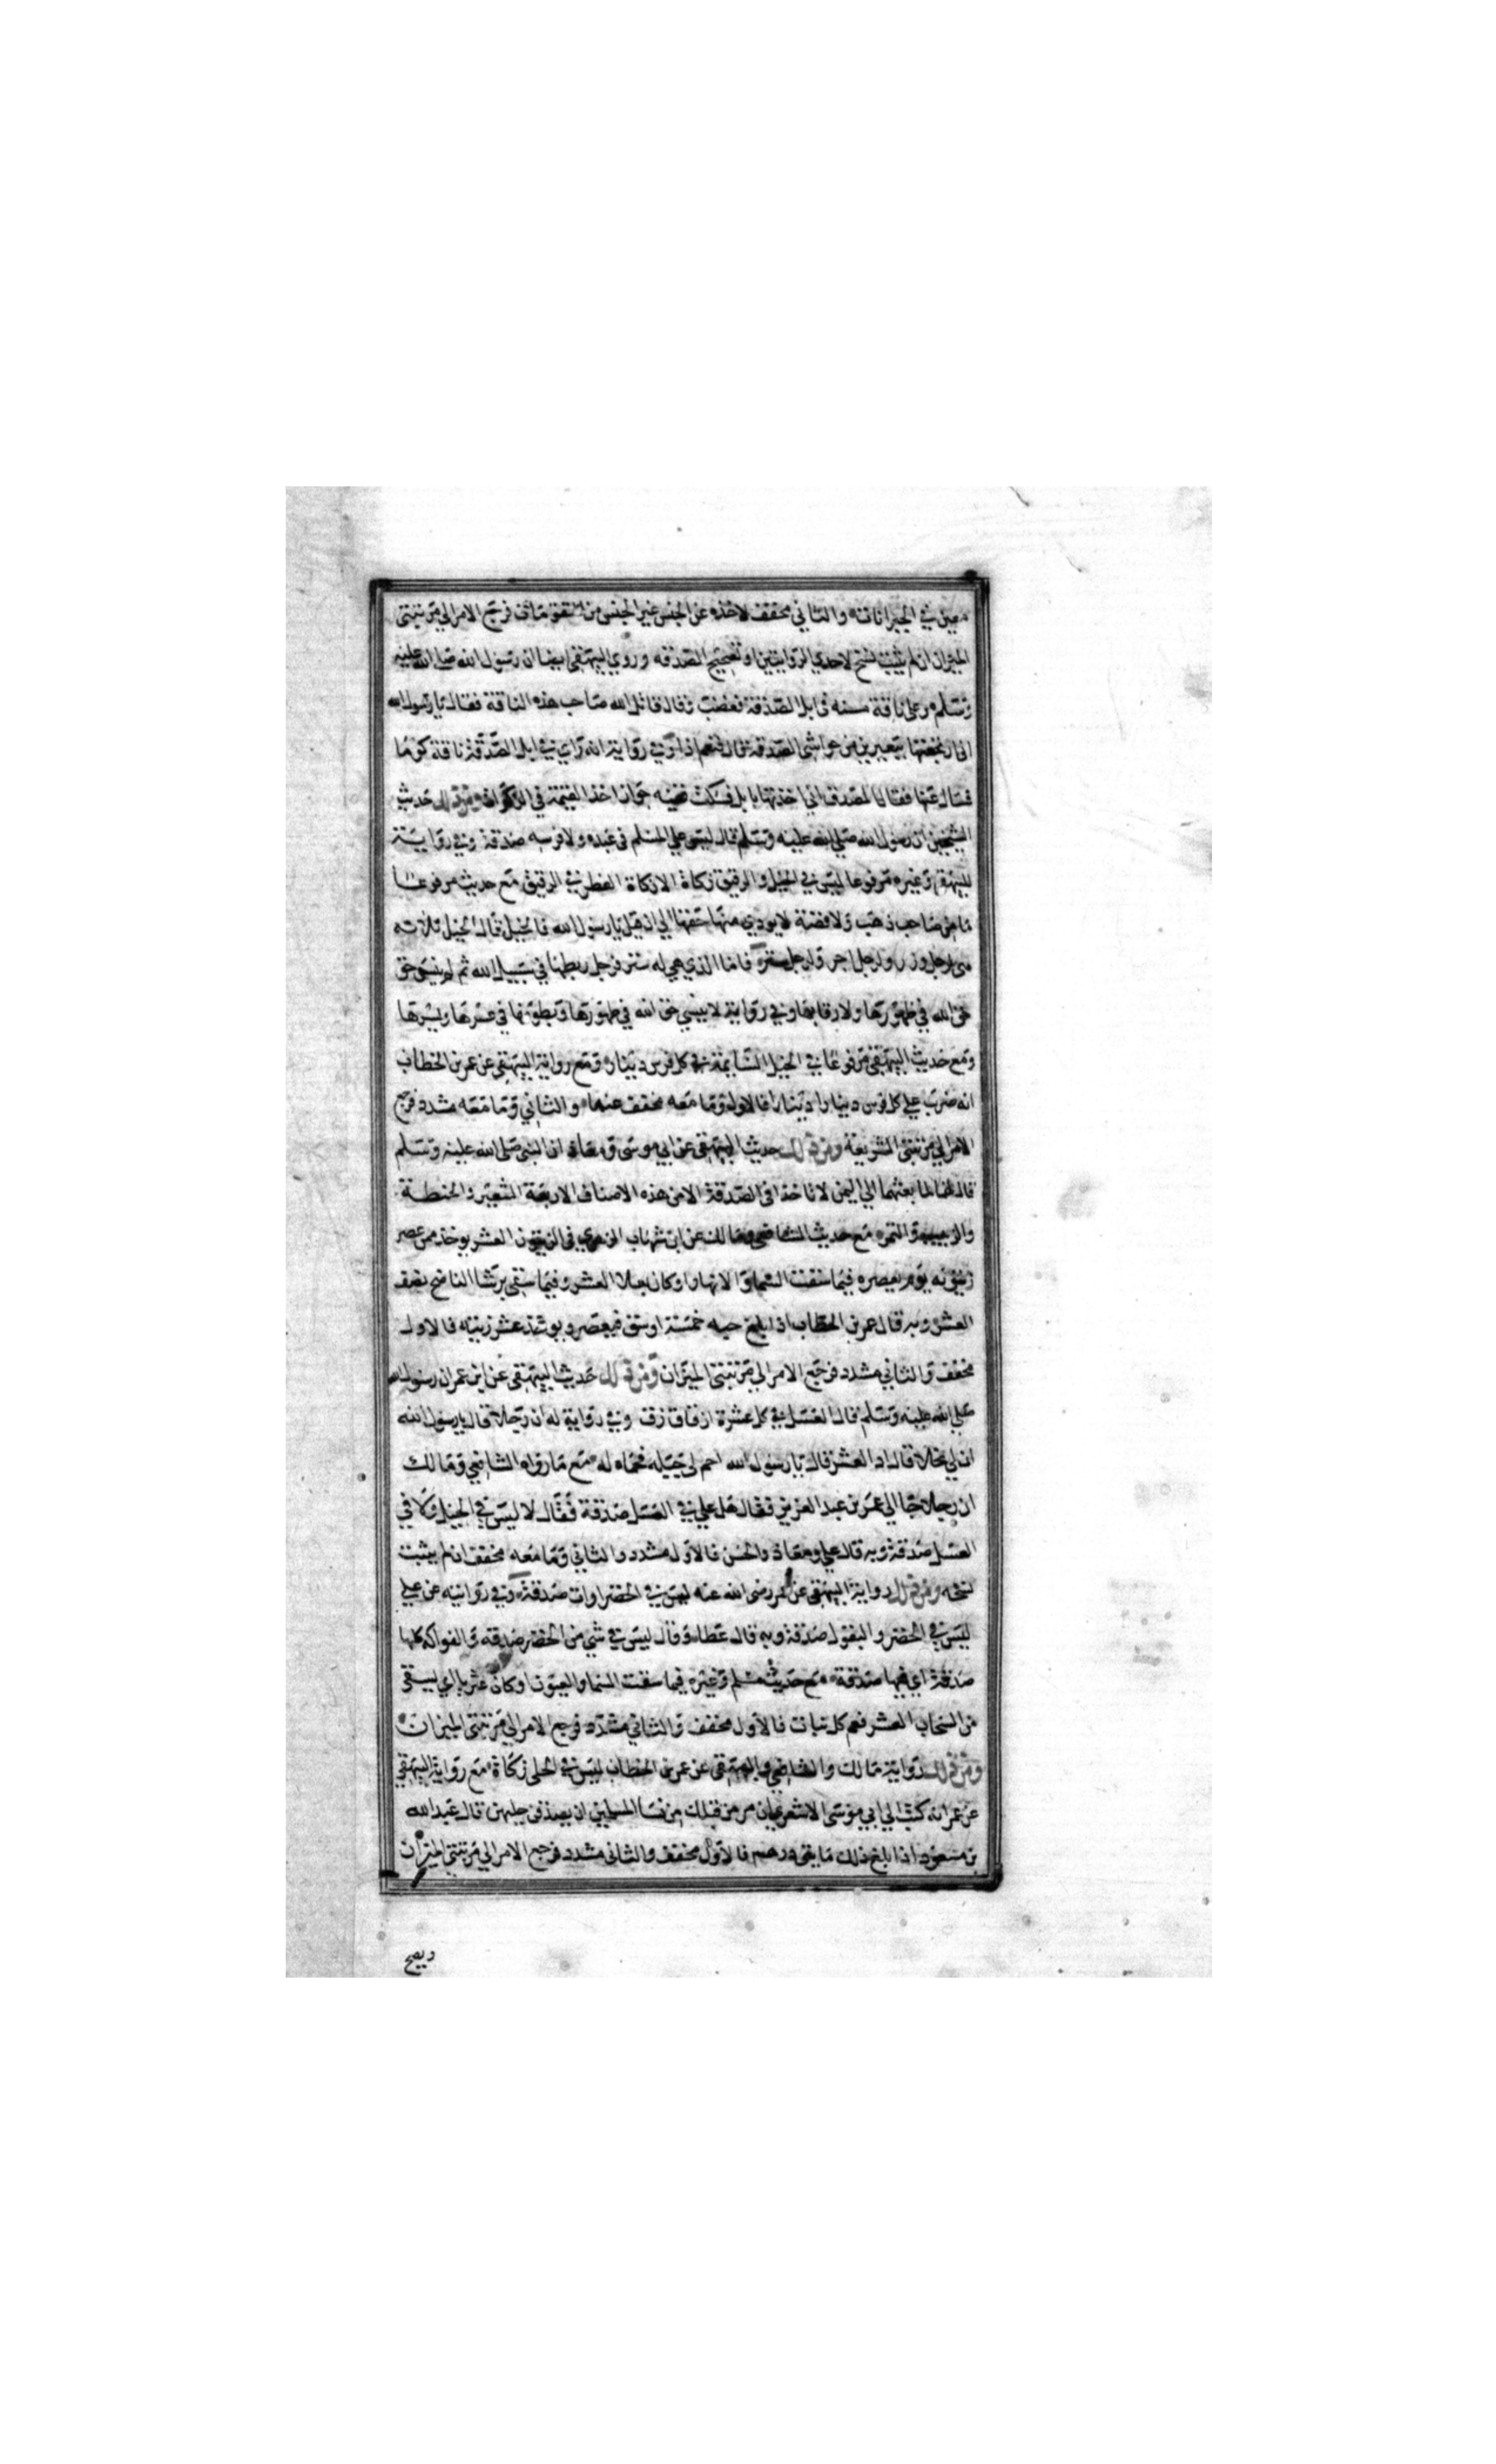 معين في الجبرانات والثاني مخفف لاخذه عن الجنس غير الجنس من فرجع الامر الي مرتبتي
الميزان ان لم يثبت نسخ لاحدي الروايتين او تصحيح الصدقه وروي البيهقي ايضا ان رسول الله صلي الله عليه
وسلم راي ناقة مسنه في ابل الصدقة فغضب وقال قاتل الله صاحب هذه الناقة فقال يا رسول الله
اني ارتجعتها ببعيرين من حواشي الصدقة قال فنعم اذا وفي رواية انه راي في ابل الصدقة ناقة كوما
فسال عنها فقال المصدق اني اخذتها بابل فسكت ففيه جواز اخذ القيمة في الزكوات ومن ذلك حديث
الشيخين ان رسول الله صلي الله عليه وسلم قال ليس علي المسلم في عبده ولا فرسه صدقة وفي رواية
للبيهقي وغيره مرفوعا ليس في الخيل والرقيق زكاة الا زكاة الفطر في الرقيق مع حديث مرفوعا
ما من صاحب ذهب ولا فضة لا يودي منها حقها الي ان قيل يا رسول الله فالخيل قال الخيل ثلاثه
هي لرجل وزر ولرجل اجر ولرجل ستر فاما الذي هي له ستر فرجل ربطها في سبيل الله ثم لم ينس حق
حق الله في ظهورها ولا رقابها وفي رواية لا ينسي حق الله في ظهورها وبطونها في عسرها ويسرها
ومع حديث البيهقي مرفوعا في الخيل السايمة في كل فرس دينار ومع رواية البيهقي عن عمر بن الخطاب
انه ضرب علي كل فرس دينارا دينارا فالاول وما معه مخفف عنها والثاني وما معه مشدد فرجع
الامر الي مرتبتي الشريعة ومن ذلك حديث البيهقي عن ابي موسي ومعاذ ان النبي صلي الله عليه وسلم
قال لهما لما بعثهما الي اليمن لا تاخذا في الصدقة الا من هذه الاصناف الاربعة الشعير والحنطة
والزبيب والتمر مع حديث الشافعي ومالك عن ابن شهاب الزهري في الزيتون العشر يوخذ ممن عصر
زيتونه يوم يعصره فيما سقت السما والانهار او كان بعلا العشر وفيما سقي برشا الناضح نصف
العشر وبه قال عمر بن الخطاب اذا بلغ حبه خمسة اوسق فيعصر ويوخذ عشر زيته فالاول
مخفف والثاني مشدد فرجع الامر الي مرتبتي الميزان ومن ذلك حديث البيهقي عن ابن عمر ان رسول الله
صلي الله عليه وسلم قال العسل في كل عشرة ازقاق زق وفي رواية له ان رجلا قال يا رسول الله
ان لي نحلا قال اد العشر قال يا رسول الله احم لي جبله فحماه له مع ما رواه الشافعي ومالك
ان رجلا جا الي عمر بن عبد العزيز فقال هل علي في العسل صدقة فقال لا ليس في الخيل ولا في
العسل صدقة وبه قال علي ومعاذ والحسن فالاول مشدد والثاني وما معه مخفف ان لم يثبت
نسخه ومن ذلك رواية البيهقي عن عمر رضي الله عنه ليس في الخضراوات صدقة وفي روايته عن علي
ليس في الخضر والبقول صدقة وبه قال عطا وقال ليس في شي من الخضر صدقه والفواكه كلها
صدقة اي فيها صدقة مع حديث مسلم وغيره فيما سقت السما والعيون او كان عثريا اي يسقي
من السحاب العشر فعم كل نبات فالاول مخفف والثاني مشدد فرجع الامر الي مرتبتي الميزان
ومن ذلك رواية مالك والشافعي والبيهقي عن عمر بن الخطاب ليس في الحلي زكاة مع رواية البيهقي
عن عمر انه كتب الي ابي موسي الاشعري ان مر من قبلك من نسا المسلمين ان يصدقن حليهن قال عبد الله
بن مسعود اذا بلغ ذلك مايتي درهم فالاول مخفف والثاني مشدد فرجع الامر الي مرتبتي الميزان
ويصح